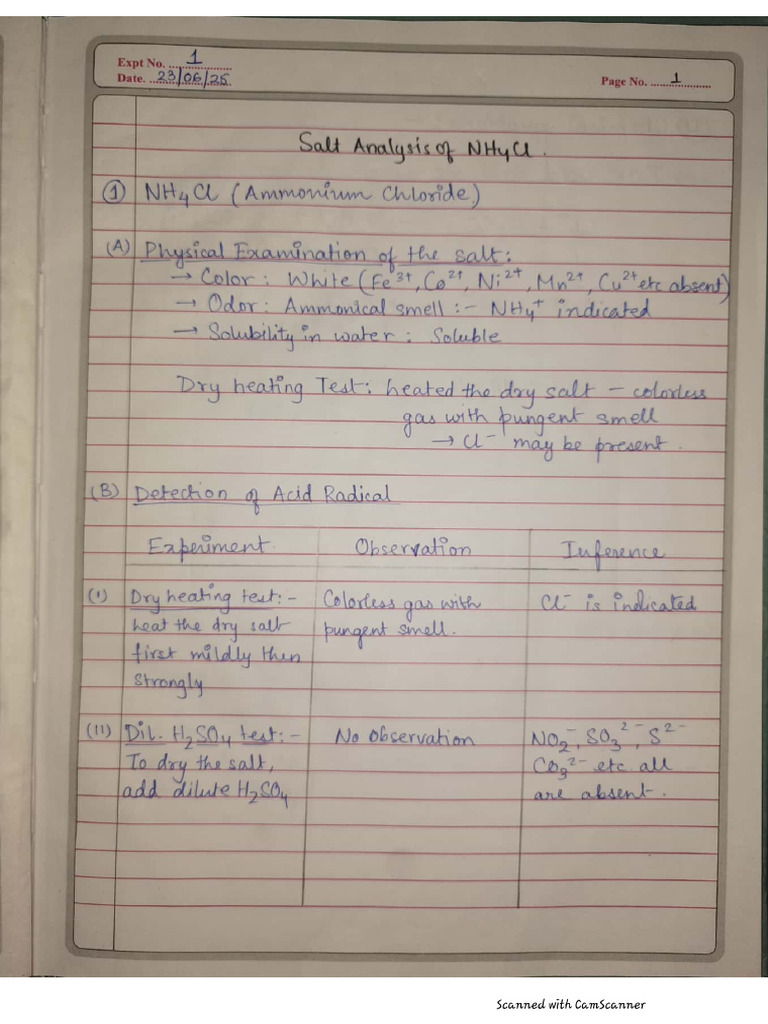 Expt No. 1
Date. 23/06/25
Page No. 1
Salt Analysis of NH4Cl.
① NH4Cl (Ammonium Chloride)
(A) Physical Examination of the salt:
→ Color: White (Fe³⁺, Co²⁺, Ni²⁺, Mn²⁺, Cu²⁺ etc absent)
→ Odor: Ammonical smell :- NH4⁺ indicated
→ Solubility in water: Soluble
Dry heating Test: heated the dry salt – colorless
gas with pungent smell
→ Cl⁻ may be present.
(B) Detection of Acid Radical
Experiment Observation Inference
(I) Dry heating test:- Colorless gas with Cl⁻ is indicated
heat the dry salt pungent smell.
first mildly then
strongly
(II) Dil. H₂SO₄ test:- No Observation NO₂⁻, SO₃²⁻, S²⁻
To dry the salt, CO₃²⁻ etc all
add dilute H₂SO₄ are absent.
Scanned with CamScanner